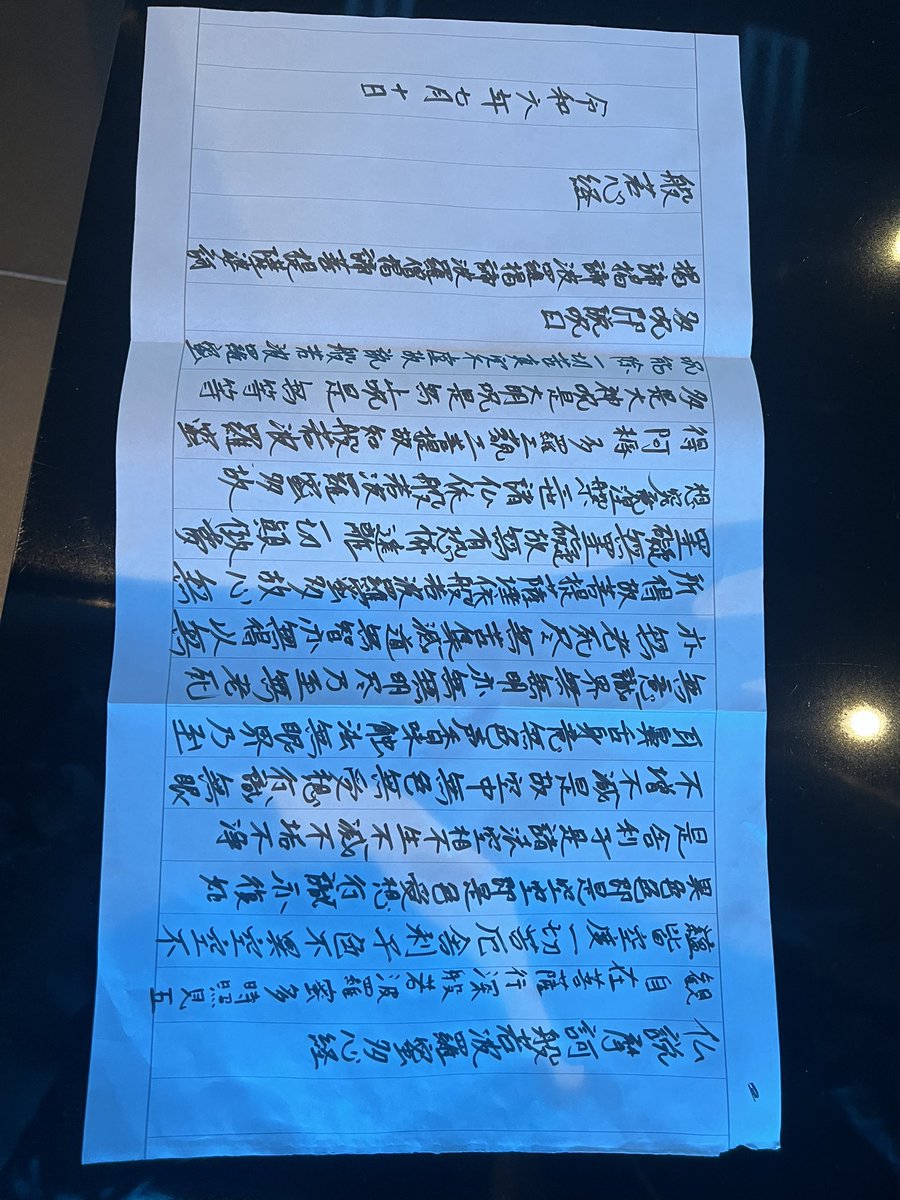 仏説摩訶般若波羅蜜多心経
観自在菩薩行深般若波羅蜜多時照見五
蘊皆空度一切苦厄舎利子色不異空空不
異色色即是空空即是色受想行識亦復如
是舎利子是諸法空相不生不滅不垢不浄
不増不減是故空中無色無受想行識無眼
耳鼻舌身意無色声香味触法無眼界乃至
無意識界無無明亦無無明尽乃至無老死
亦無老死尽無苦集滅道無智亦無得以無
所得故菩提薩埵依般若波羅蜜多故心無
罣礙無罣礙故無有恐怖遠離一切顛倒夢
想究竟涅槃三世諸仏依般若波羅蜜多故
得阿耨多羅三藐三菩提故知般若波羅蜜
多是大神呪是大明呪是無上呪是無等等
呪能除一切苦真実不虚故説般若波羅蜜
多呪即説呪曰
掲諦掲諦波羅掲諦波羅僧掲諦菩提薩婆訶
般若心経
令和六年七月十日